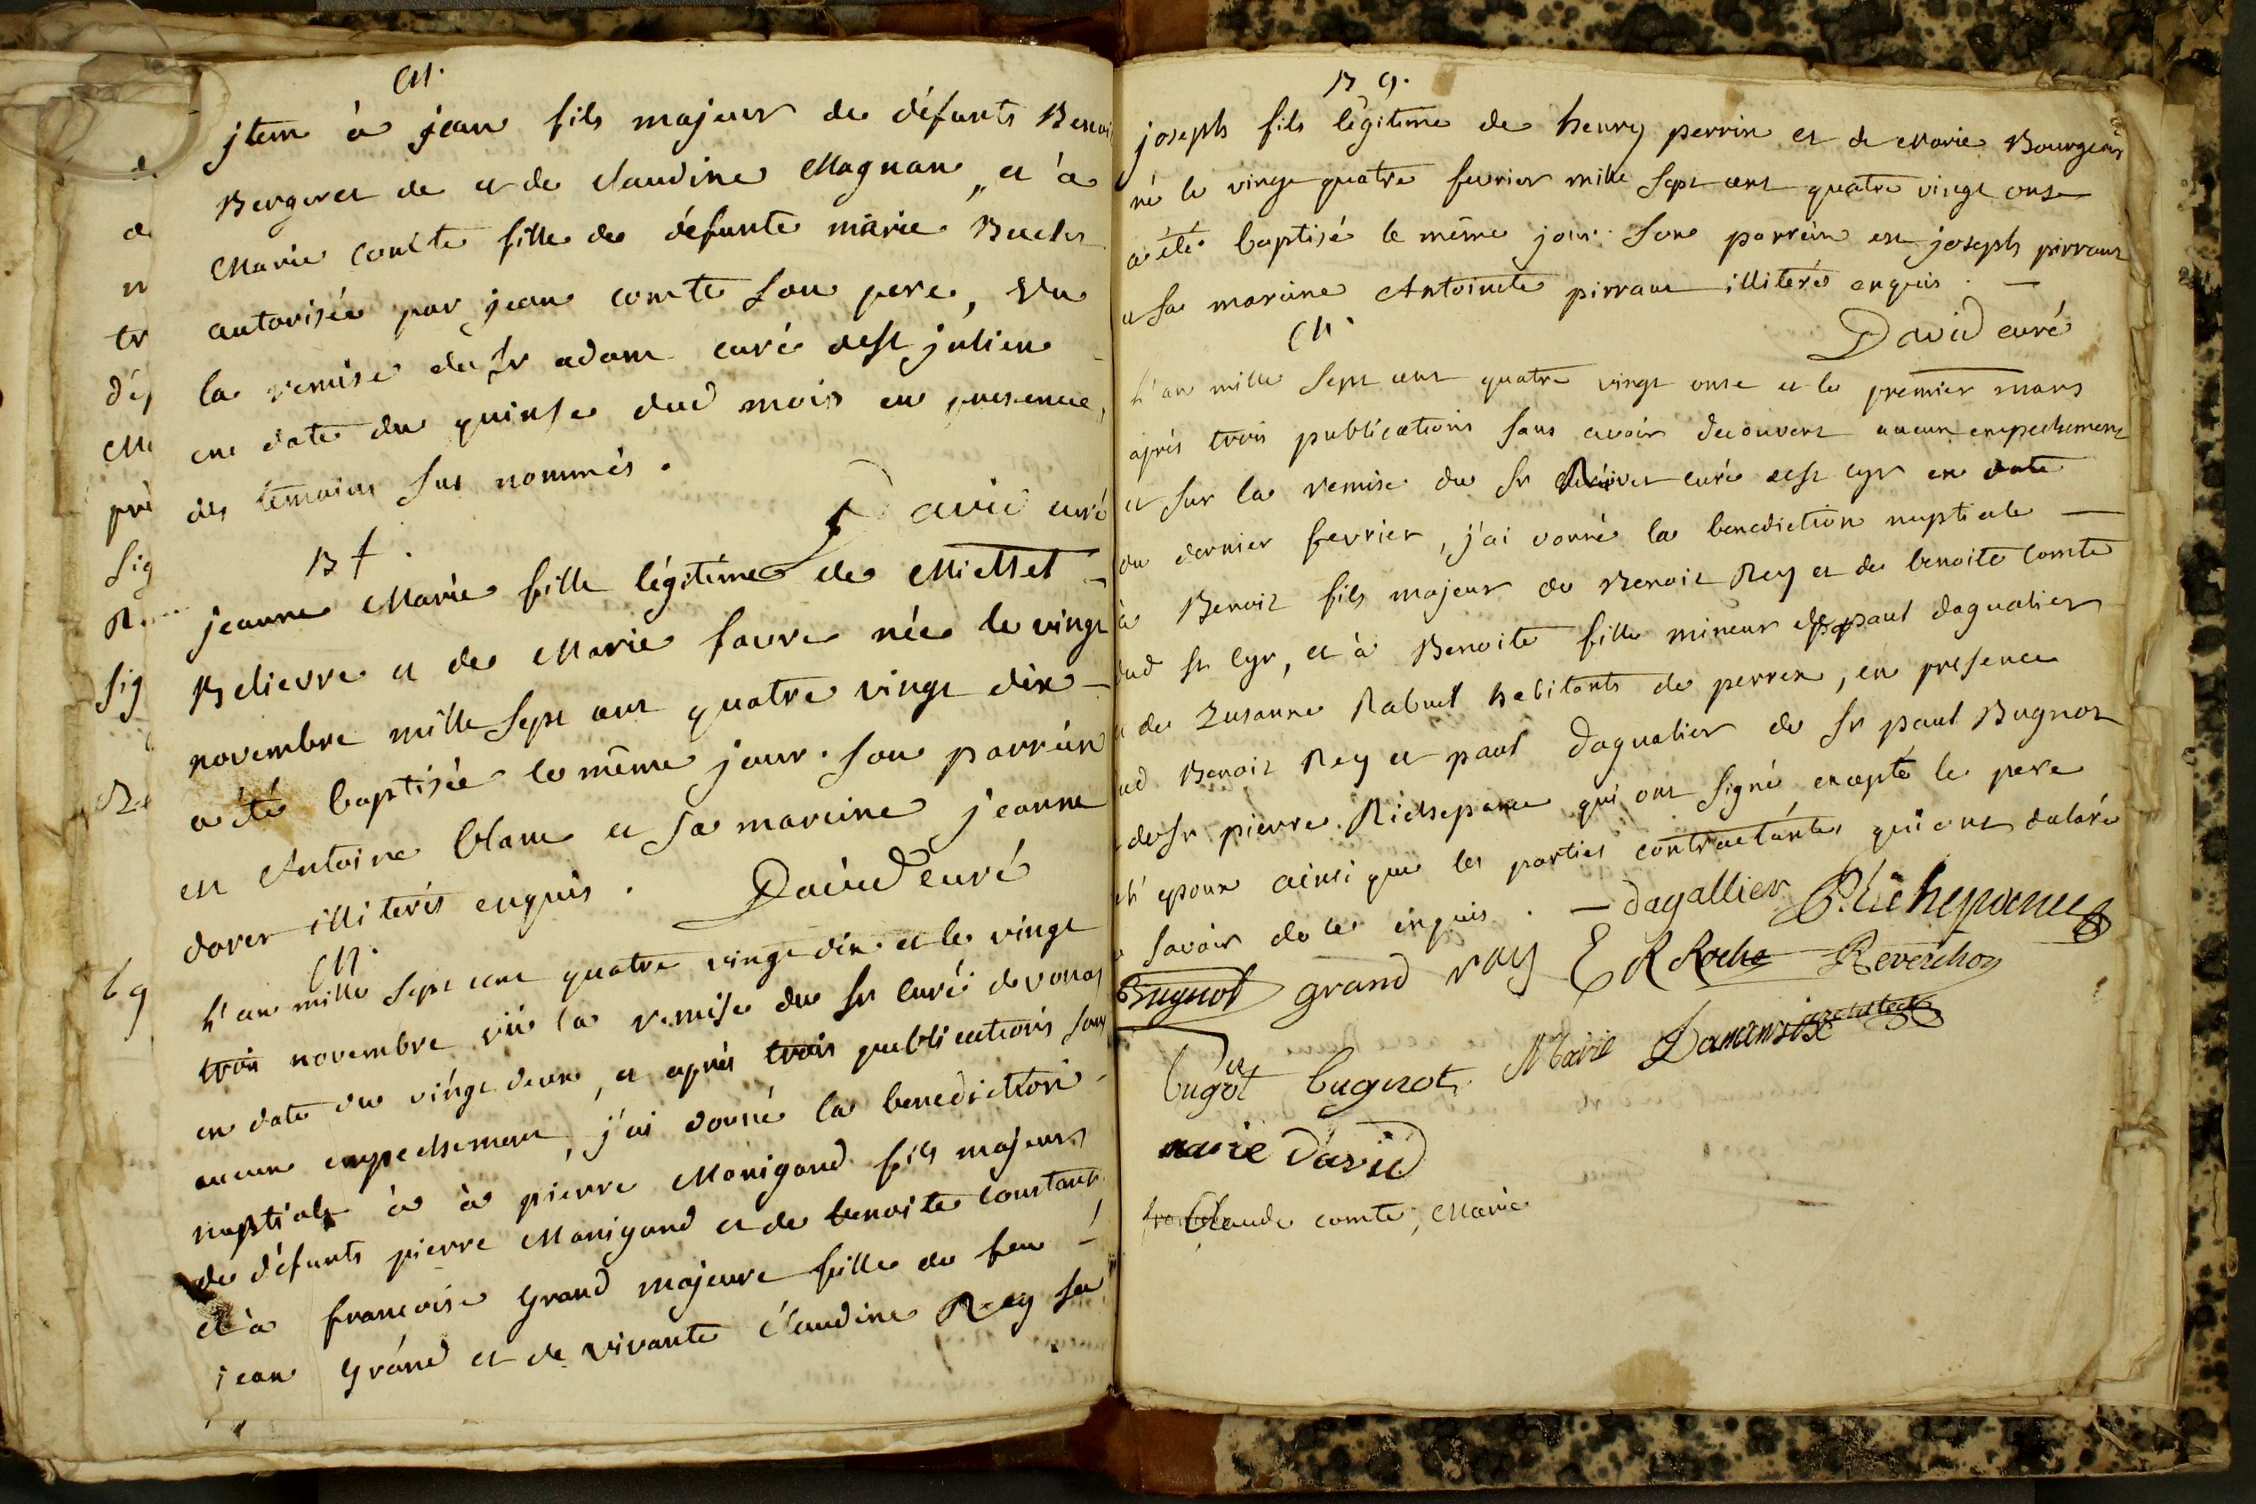 M.
jtem à jean fils majeur de défunts Benoi
Bergeret de et de Claudine Magnan, et à
Marie Comte fille de défunte marie Buclet
autorisée par jean comte son pere, vu
la remise du Sr adam curé de St julien
en date du quinse dud mois en presence
des temoins sus nommés.
David curé
B f.
jeanne Marie fille légitime de Michel
Believre et de Marie favre née le vingt
novembre mille sept cent quatre vingt dix
a été baptisée le même jour. son parrein
est Antoine blanc et sa mareine jeanne
dover illiterés enquis. David curé
M.
L'an mille sept cent quatre vingt dix et le vingt
trois novembre vû la remise du Sr Curé de vonas
en date du vingt deux, et après trois publications sans
aucun empechement, j'ai donné la benediction
nuptiale à à pierre Monigand fils majeur
de défunts pierre Manigand et de benoite Constant
et à francoise Grand majeure fille de feu
jean Grand et de vivante Claudine Rey sa
B g.
joseph fils légitime de henry perrin et de Marie Bourgeois
né le vingt quatre fevrier mille sept cent quatre vingt onse
a été baptisé le même jour. Son parrein est joseph pirraut
et sa mareine Antoinete pirraut illiterés enquis.
David curé
M.
L'an mille sept cent quatre vingt onse et le premier mars
après trois publications sans avoir decouvert aucun empechement
et sur la remise du Sr curé de St cyr en date
du dernier fevrier, j'ai donné la benediction nuptiale
à Benoit fils majeur de Benoit Rey et de benoite Comte
dud St Cyr, et à Benoite fille mineur de paul dagualier
et de Zusanne Rabuel habitants de perrex, en presence
dud Benoit Rey et paul Dagualier de Sr paul Bugnot
de Sr pierre Richepance qui ont signé excepté le pere
de l'epoux ainsi que les parties contractantes qui ont declaré
savoir de ce enquis. — dagallier P. Richepance
Bugnot grand rey E R Roche Reverchon
bugot bugnot Marie
marie David
Claude comte, Marie